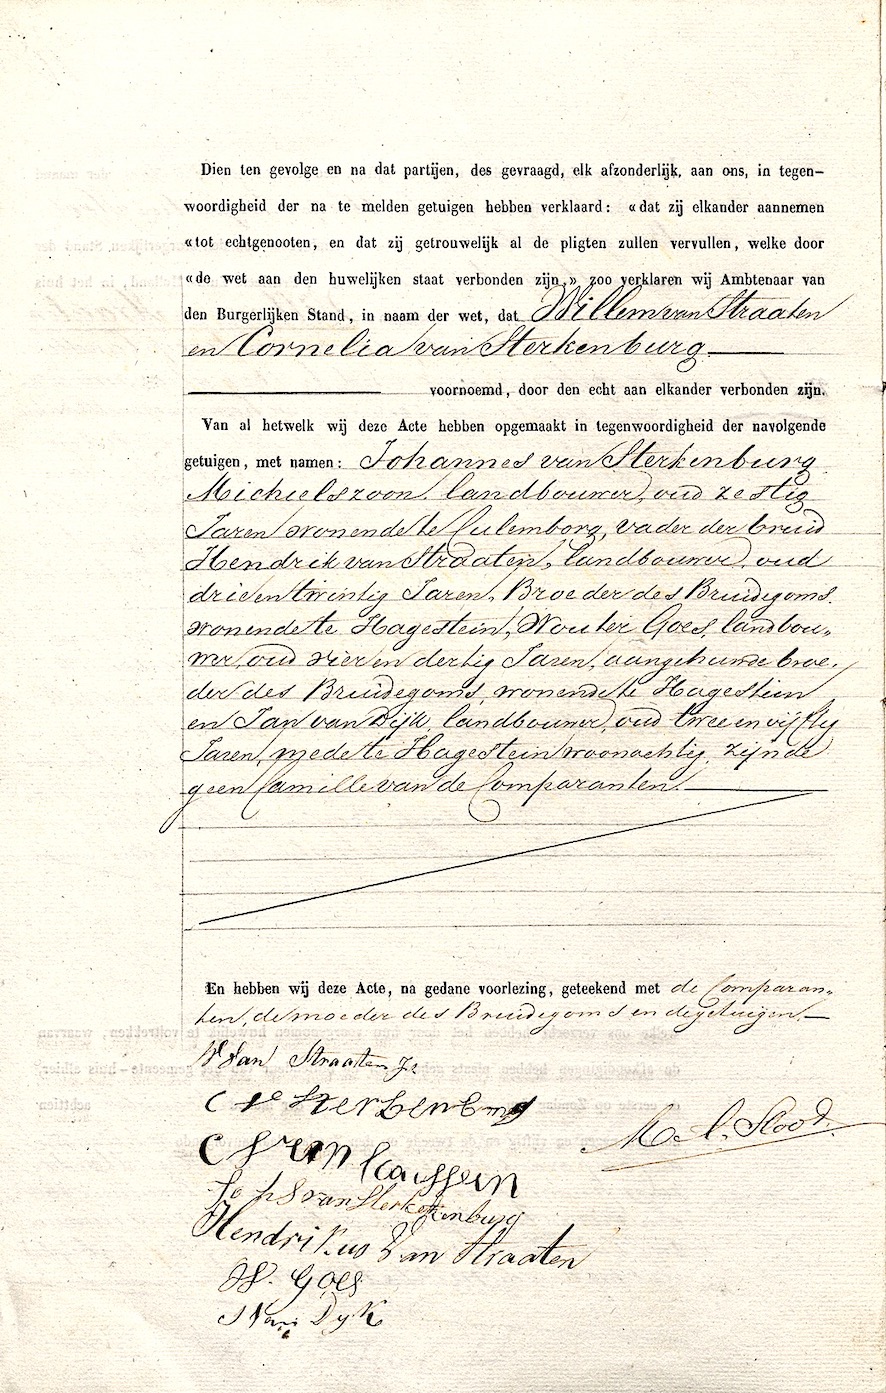 Dien ten gevolge en na dat partijen, des gevraagd, elk afzonderlijk, aan ons, in tegen-
woordigheid der na te melden getuigen hebben verklaard: «dat zij elkander aannemen
«tot echtgenooten, en dat zij getrouwelijk al de pligten zullen vervullen, welke door
«de wet aan den huwelijken staat verbonden zijn,» zoo verklaren wij Ambtenaar van
den Burgerlijken Stand, in naam der wet, dat Willem van Straaten
en Cornelia van Sterkenburg
voornoemd, door den echt aan elkander verbonden zijn.
Van al hetwelk wij deze Acte hebben opgemaakt in tegenwoordigheid der navolgende
getuigen, met namen: Johannes van Sterkenburg
Michielszoon, landbouwer, oud zestig
Jaren wonende te Culemborg, vader der bruid
Hendrik van Straaten, landbouwer, oud
drieentwintig Jaren, Broeder des Bruidegoms.
wonende te Hagestein, Wouter Goes, landbou-
wer, oud vier en dertig Jaren, aangehuwde broe-
der des Bruidegoms, wonende te Hagestein
en Jan van Dijk, landbouwer, oud twee en vijftig
Jaren, mede te Hagestein woonachtig, zijnde
geen familie van de Comparanten.
En hebben wij deze Acte, na gedane voorlezing, geteekend met de Comparan-
ten, de moeder des Bruidegoms en de getuigen.
W Van Straaten Jz
C v Sterkenburg
M. C. Sloot.
Johs van Sterkenburg
Hendrikus Van Straaten
W. Goes
J Van Dyk